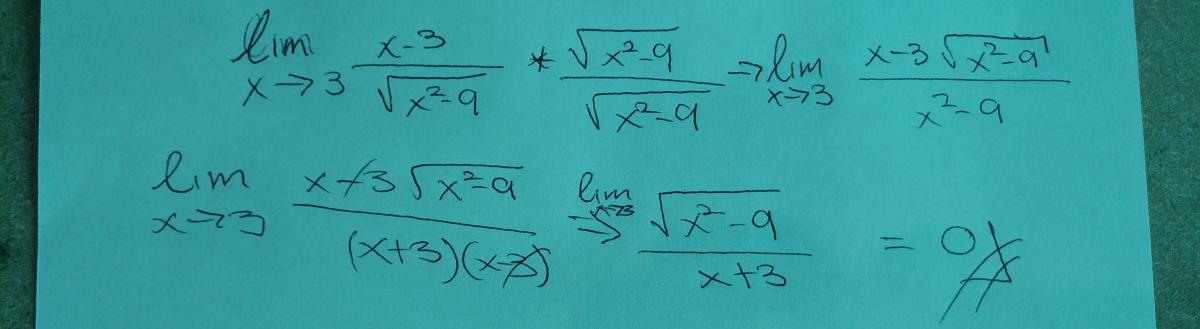 lim x→3 x-3 / √x²-9 * √x²-9 / √x²-9 → lim x→3 x-3 √x²-9 / x²-9
lim x→3 x-3 √x²-9 / (x+3)(x-3) ⇒ lim x→3 √x²-9 / x+3 = 0